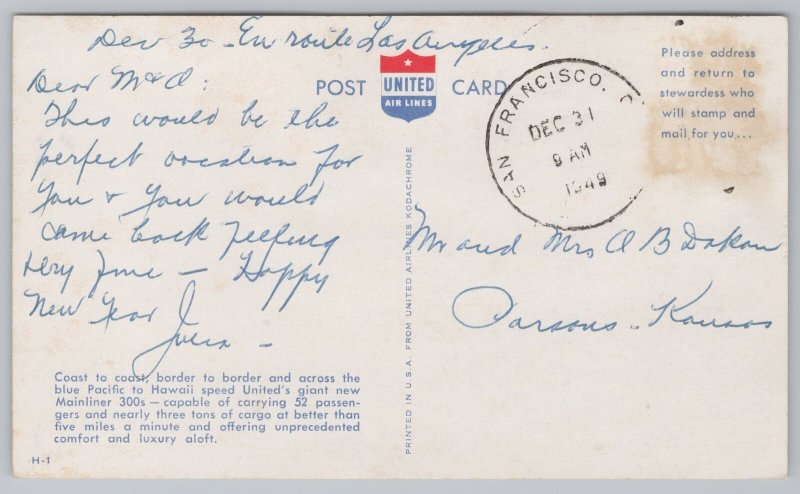 Dec 30 - En route Los Angeles.
Dear M & O:
This would be the
perfect vacation for
you & you would
come back feeling
very fine — Happy
New Year
POST
UNITED
AIR LINES
CARD
SAN FRANCISCO, C
DEC 31
9 AM
1949
Please address
and return to
stewardess who
will stamp and
mail for you...
Mr and Mrs O B Dakan
Parsons - Kansas
Coast to coast, border to border and across the
blue Pacific to Hawaii speed United's giant new
Mainliner 300s—capable of carrying 52 passen-
gers and nearly three tons of cargo at better than
five miles a minute and offering unprecedented
comfort and luxury aloft.
H-1
PRINTED IN U.S.A. FROM UNITED AIRLINES KODACHROME